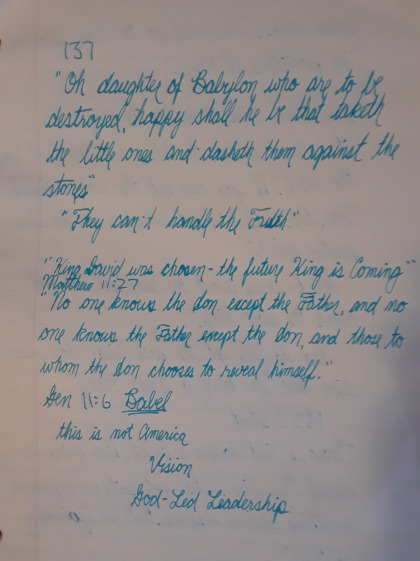 137
"Oh daughter of Babylon who are to be
destroyed, happy shall he be that taketh
the little ones and dasheth them against the
stones"
"They can't handle the Truth"
"King David was chosen - the future King is Coming"
Matthew 11:27
"No one knows the Son except the Father, and no
one knows the Father except the Son, and those to
whom the Son chooses to reveal himself."
Gen 11:6 Babel
this is not America
Vision
God-Led Leadership